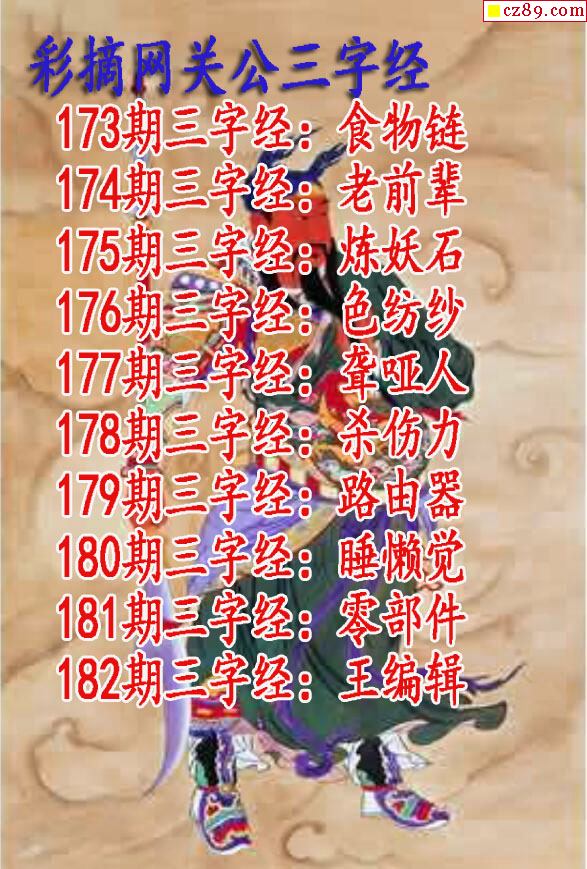 cz89.com
彩摘网关公三字经
173期三字经：食物链
174期三字经：老前辈
175期三字经：炼妖石
176期三字经：色纺纱
177期三字经：聋哑人
178期三字经：杀伤力
179期三字经：路由器
180期三字经：睡懒觉
181期三字经：零部件
182期三字经：王编辑